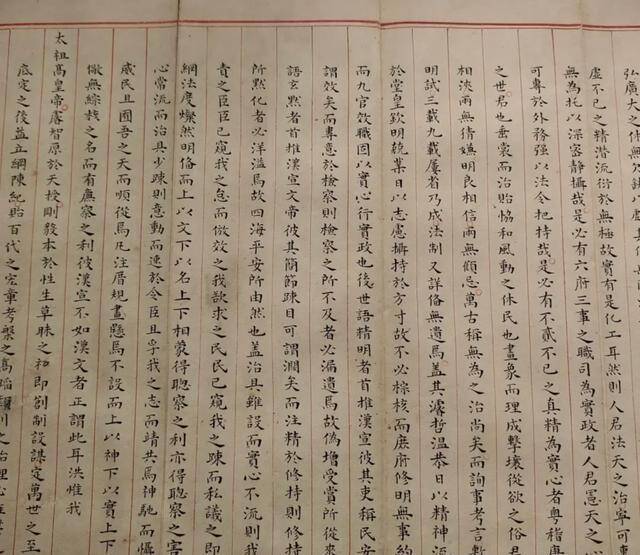 弘廣大之休無欠缺以虧其
虛不已之精潛流衍於無極故實有是化工耳然則人君法天之治寧可
無為托以深密靜攝哉是必有六府三事之職司為實政者人君憲天之
可專於外務强以法令把持哉是必有不貳不已之真精為實心者粤稽唐
之世君也垂裳而治貽恊和風動之休民也畫象而理成擊壤從欲之俗君
相浹兩無猜嫌明良相信兩無顧忌萬古稱無為之治尚矣而詢事考言敷
明試三載九載屢省乃成法制又詳備無遺焉蓋其濬哲温恭日以精神流
於堂皇欽明兢業日以志慮攝持於方寸故不必綜核而庶府修明無事約
而九官效職固以實心行實政也後世語精明者首推漢宣彼其吏稱民安
謂效矣而專意於檢察則檢察之所不及者必漏遺焉故偽增受賞所從來
語玄默者首推漢文帝彼其簡節疎目可謂濶矣而注精於修持則修持
所默化者必洋溢焉故四海平安所由然也蓋治具雖設而實心不流則我
責之臣臣已窺我之怠而倣效之我欲求之民民已窺我之疎而私議之即
綱法度燦然明備而上以文下以名上下相蒙得聰察之利亦得聰察之害
心常流而治具少疎則意動而速於令臣且孚我之志而靖共焉神馳而懾
威民且囿吾之天而順從焉凡注厝規畫懸焉不設而上以神下以實上下
儆無綜核之名而有廉察之利彼漢宣不如漢文者正謂此耳洪惟我
太祖高皇帝睿智原於天授剛毅本於性生草昧之初即創制設謀定萬世之至
底定之後益立綱陳紀貽百代之宏章考槃之高蹈潁川之治理必